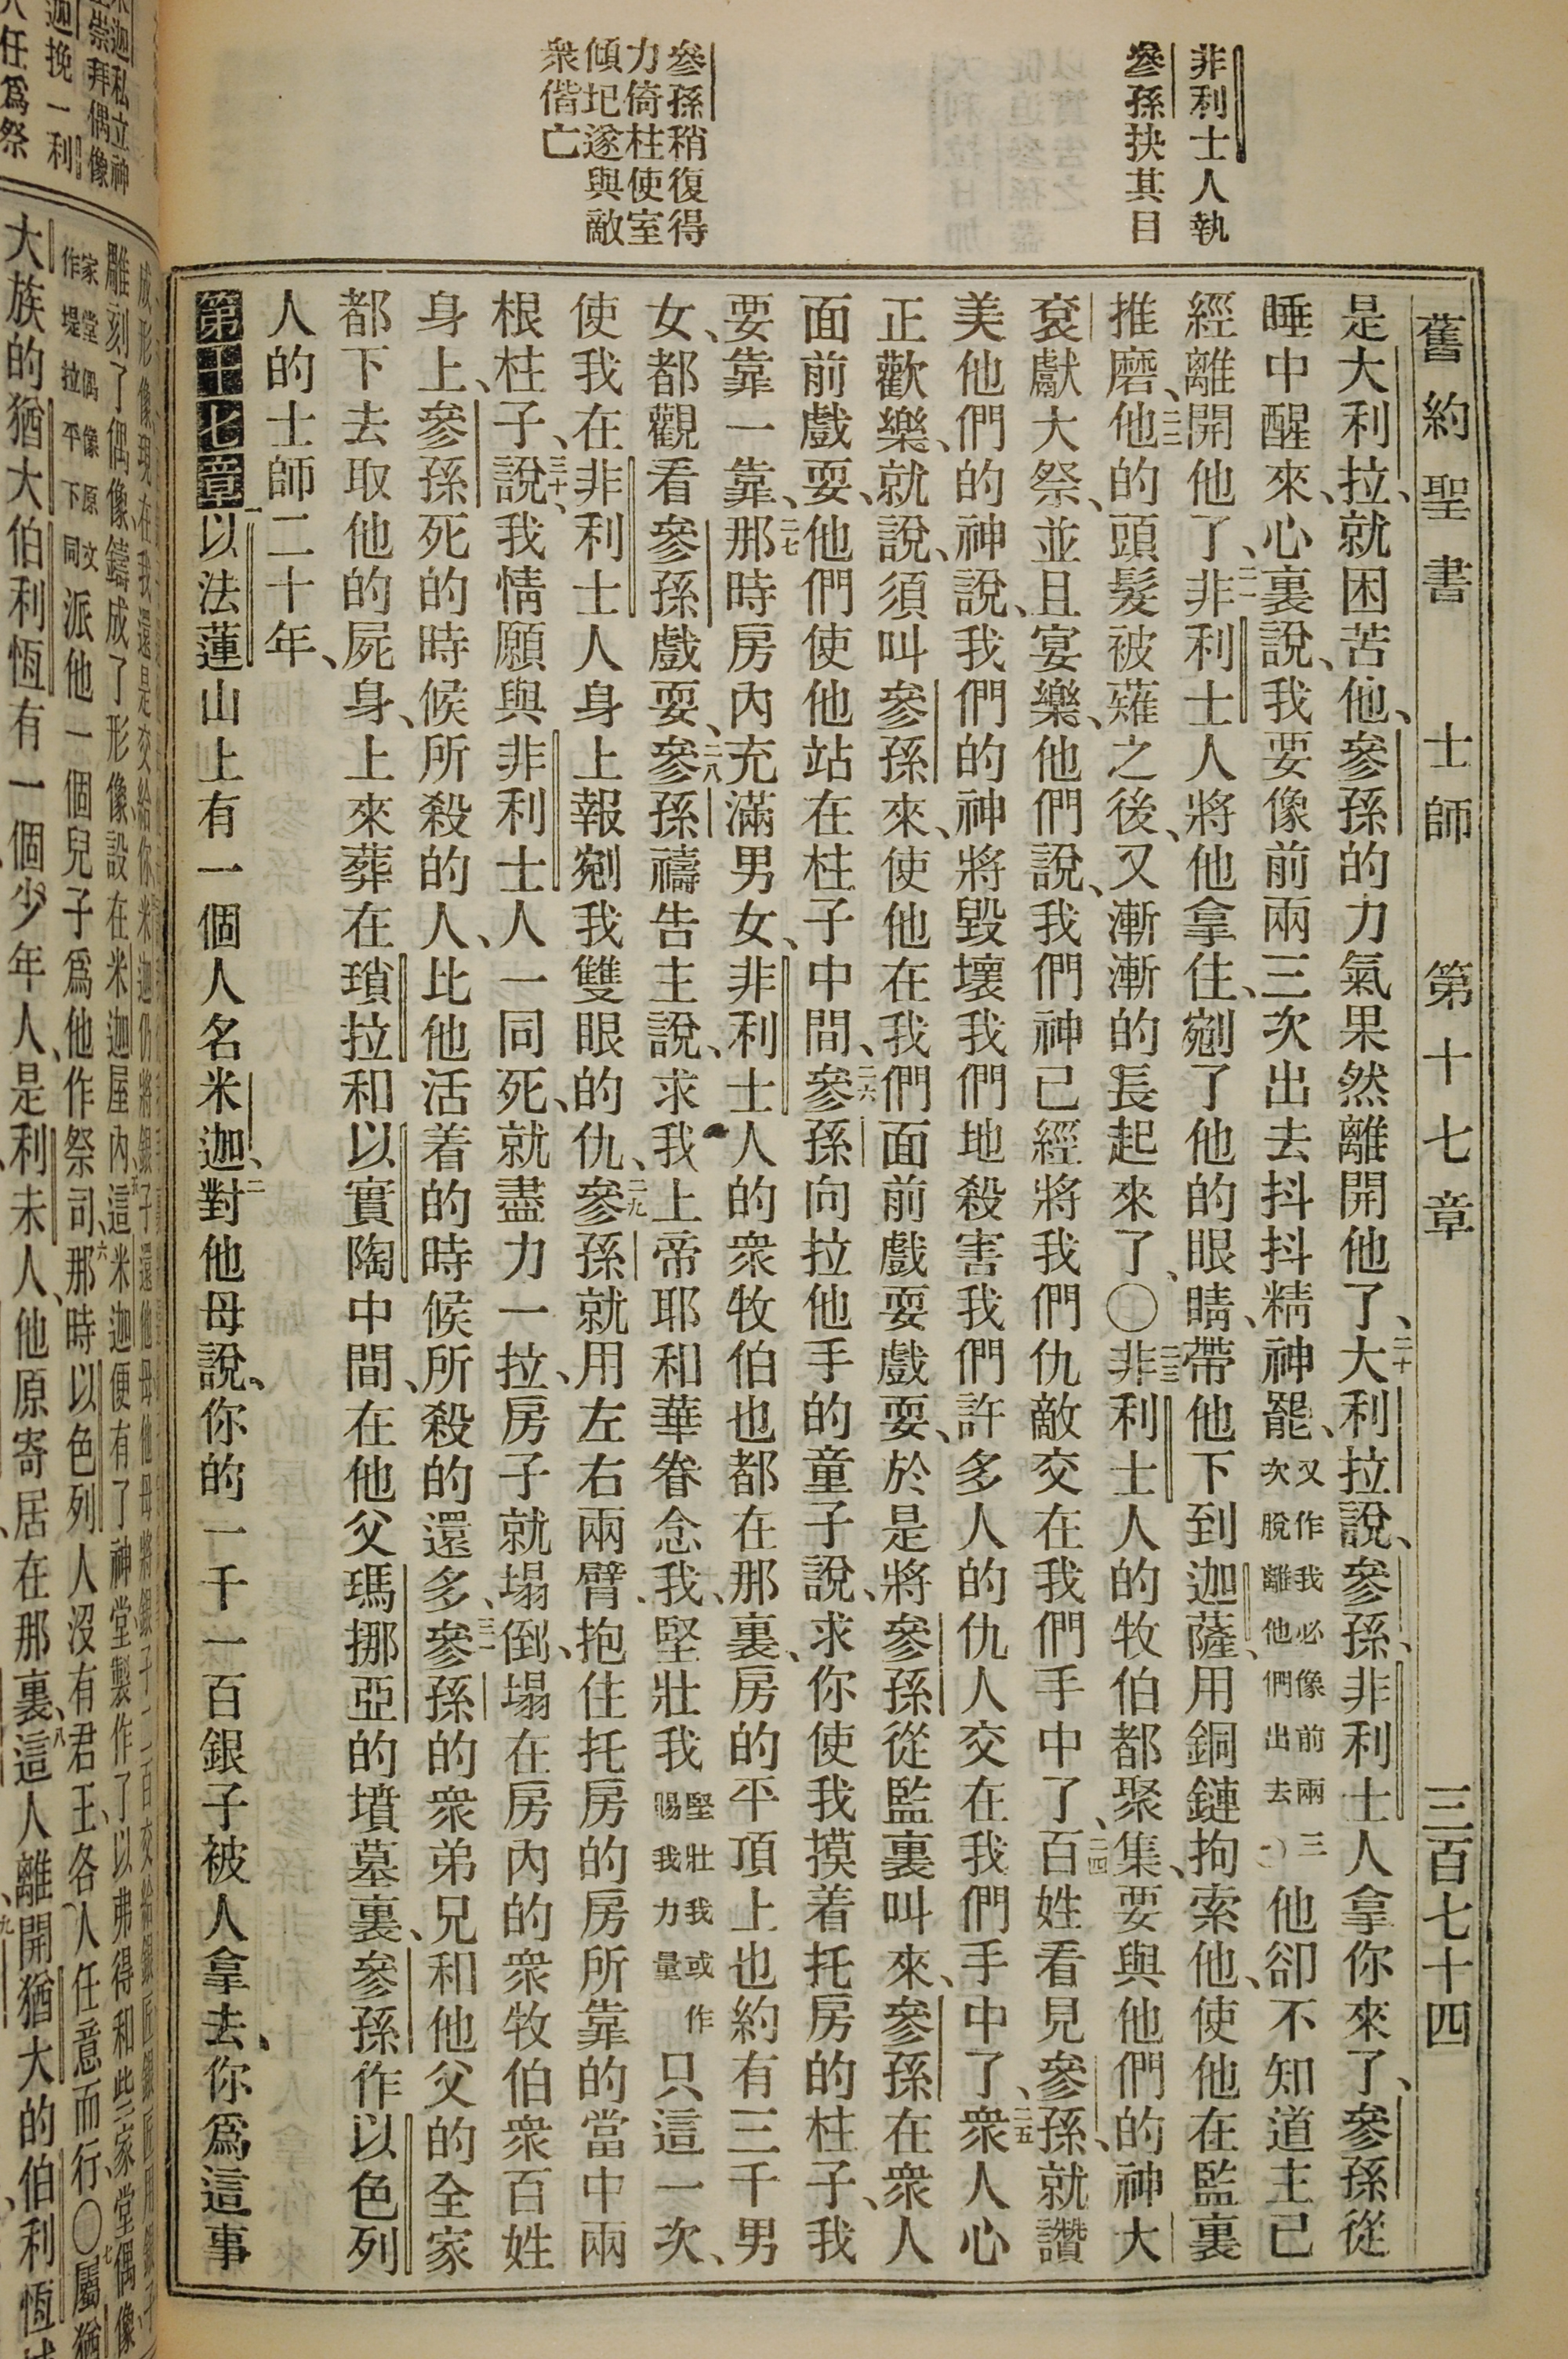 非利士人執
參孫抉其目
參孫稍復得
力倚柱使室
傾圮遂與敵
衆偕亡
舊約聖書 士師 第十七章 三百七十四
是大利拉、就困苦他、參孫的力氣果然離開他了、二十大利拉說、參孫、非利士人拿你來了、參孫從
睡中醒來、心裏說、我要像前兩三次出去抖抖精神罷、又作我必像前兩三次脫離他們出去他卻不知道主已
經離開他了、二一非利士人將他拿住、剜了他的眼睛、帶他下到迦薩、用銅鏈拘索他、使他在監裏
推磨、二二他的頭髮被薙之後、又漸漸的長起來了、〇二三非利士人的牧伯都聚集、要與他們的神大
袞獻大祭、並且宴樂、他們說、我們神已經將我們仇敵交在我們手中了、二四百姓看見參孫、就讚
美他們的神說、我們的神將毀壞我們地殺害我們許多人的仇人交在我們手中了、二五衆人心
正歡樂、就說、須叫參孫來、使他在我們面前戲耍戲耍、於是將參孫從監裏叫來、參孫在衆人
面前戲耍、他們使他站在柱子中間、二六參孫向拉他手的童子說、求你使我摸着托房的柱子、我
要靠一靠、二七那時房內充滿男女、非利士人的衆牧伯也都在那裏、房的平頂上也約有三千男
女、都觀看參孫戲耍、二八參孫禱告主說、求我上帝耶和華眷念我、堅壯我堅壯我或作賜我力量只這一次、
使我在非利士人身上報剜我雙眼的仇、二九參孫就用左右兩臂、抱住托房的房所靠的當中兩
根柱子、三十說、我情願與非利士人一同死、就盡力一拉、房子就塌倒、塌在房內的衆牧伯衆百姓
身上、參孫死的時候所殺的人、比他活着的時候所殺的還多、三一參孫的衆弟兄和他父的全家
都下去取他的屍身、上來葬在瑣拉和以實陶中間、在他父瑪挪亞的墳墓裏、參孫作以色列
人的士師二十年、
第十七章一以法蓮山上有一個人名米迦、二對他母說、你的一千一百銀子被人拿去、你爲這事
迦私立神
崇拜偶像
迦挽一利
人任爲祭
成形像、現在我還是交給你米迦仍將銀子還他母他母將銀子二百交給銀匠銀匠用銀子
雕刻了偶像鑄成了形像設在米迦屋內、五這米迦便有了神堂製作了以弗得和些家堂偶像
家堂偶像原文作堤拉平下同派他一個兒子爲他作祭司、六那時以色列人沒有君王、各人任意而行、〇七屬猶
大族的猶大伯利恆有一個少年人、是利未人、他原寄居在那裏、八這人離開猶大的伯利恆